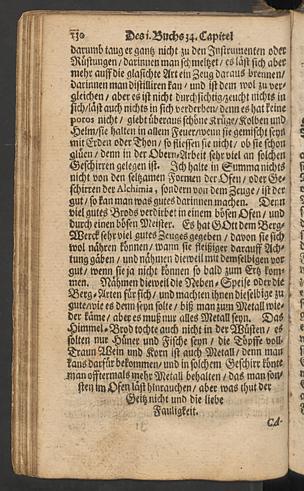 130 Des 1. Buchs 34. Capitel
darumb taug er gantz nicht zu den Instrumenten oder
Rüstungen / darinnen man schmeltzet / es läst sich aber
mehr auff die glasichte Art ein Zeug daraus brennen /
darinnen man distilliren kan / und ist dem wol zu ver-
gleichen / aber es ist nicht durchsichtig / zeucht nichts in
sich / läst auch nichts in sich verderben / denn es hat keine
poros nicht / giebt überaus schöne Krüge / Kolben und
Helm / sie halten in allem Feuer / wenn sie gemischt seyn
mit Erden oder Thon / so fliessen sie nicht / ob sie schon
glüen / denn in der Obern Arbeit sehr viel an solchen
Geschirren gelegen ist. Ich halte in Summa nichts
nicht von den seltzamen Formen der Ofen / oder Ge-
schirren der Alchimia, sondern von dem Zeuge / ist der
gut / so kan man was gutes darinnen machen. Denn
viel gutes Brods verdirbet in einem bösen Ofen / und
durch einen bösen Meister. Es hat GOtt dem Berg-
Werck sehr viel gutes Zeuges gegeben / davon sie sich
wol nähren können / wann sie fleissiger darauff Ach-
tung gäben / und nähmen dieweil mit demselbigen vor
gut / wenn sie ja nicht können so bald zum Ertz kom-
men. Nähmen dieweil die Neben-Speise oder die
Berg-Arten für sich / und machten ihnen dieselbige zu
gute / wie es denn seyn solte / biß man zum Metall wie-
der käme / aber es muß nur alles Metall seyn. Das
Himmel-Brod tochte auch nicht in der Wüsten / es
solten nur Hüner und Fische seyn / die Töpffe voll.
Traun Wein und Korn ist auch Metall / denn man
kans darfür bekommen / und in solchem Geschirr könte
man offtermals mehr Metall behalten / das man son-
sten im Ofen läst hinrauchen / aber was thut der
Geitz nicht und die liebe
Fauligkeit.
CA-